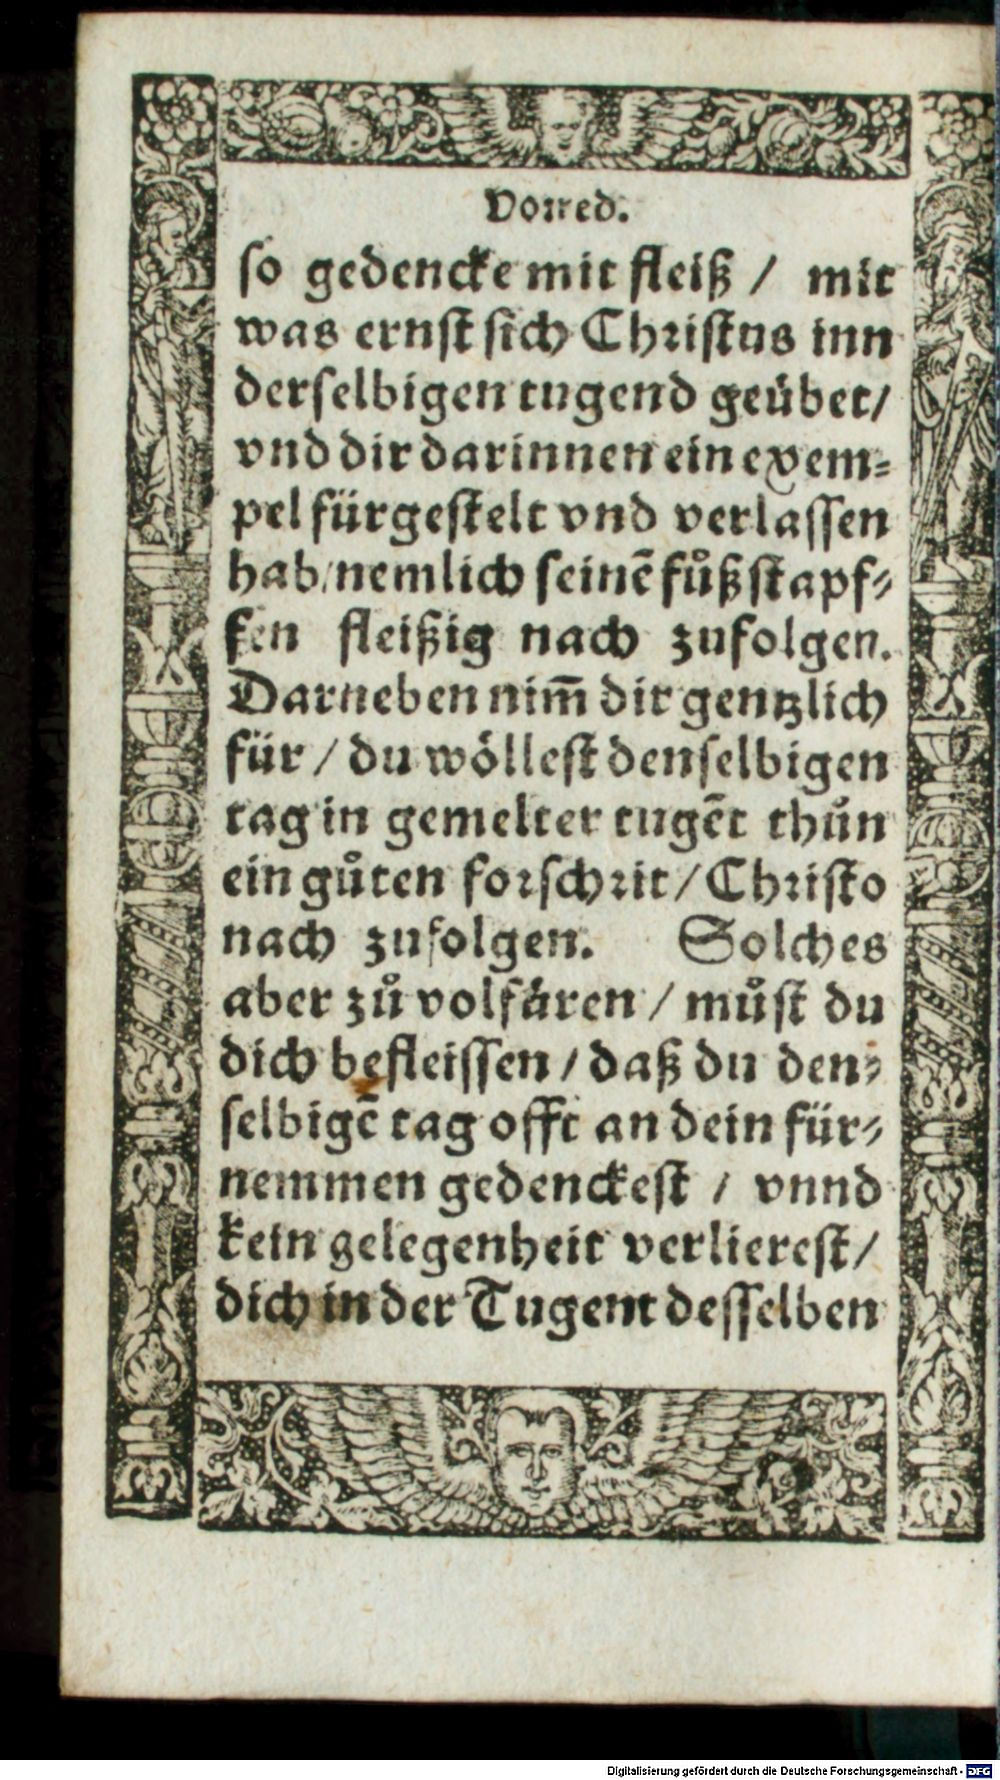 Vorred.
so gedencke mit fleiß / mit
was ernst sich Christus inn
derselbigen tugend geübet/
vnd dir darinnen ein exem⸗
pel fürgestelt vnd verlassen
hab/nemlich seinē fůßstapf⸗
fen fleißig nach zufolgen.
Darneben nim̄ dir gentzlich
für / du wöllest denselbigen
tag in gemelter tugēt thůn
ein gůten forschrit / Christo
nach zufolgen. Solches
aber zů volfären / můst du
dich befleissen / daß du den⸗
selbigē tag offt an dein für⸗
nemmen gedenckest / vnnd
kein gelegenheit verlierest /
dich in der Tugent desselben
Digitalisierung gefördert durch die Deutsche Forschungsgemeinschaft - DFG